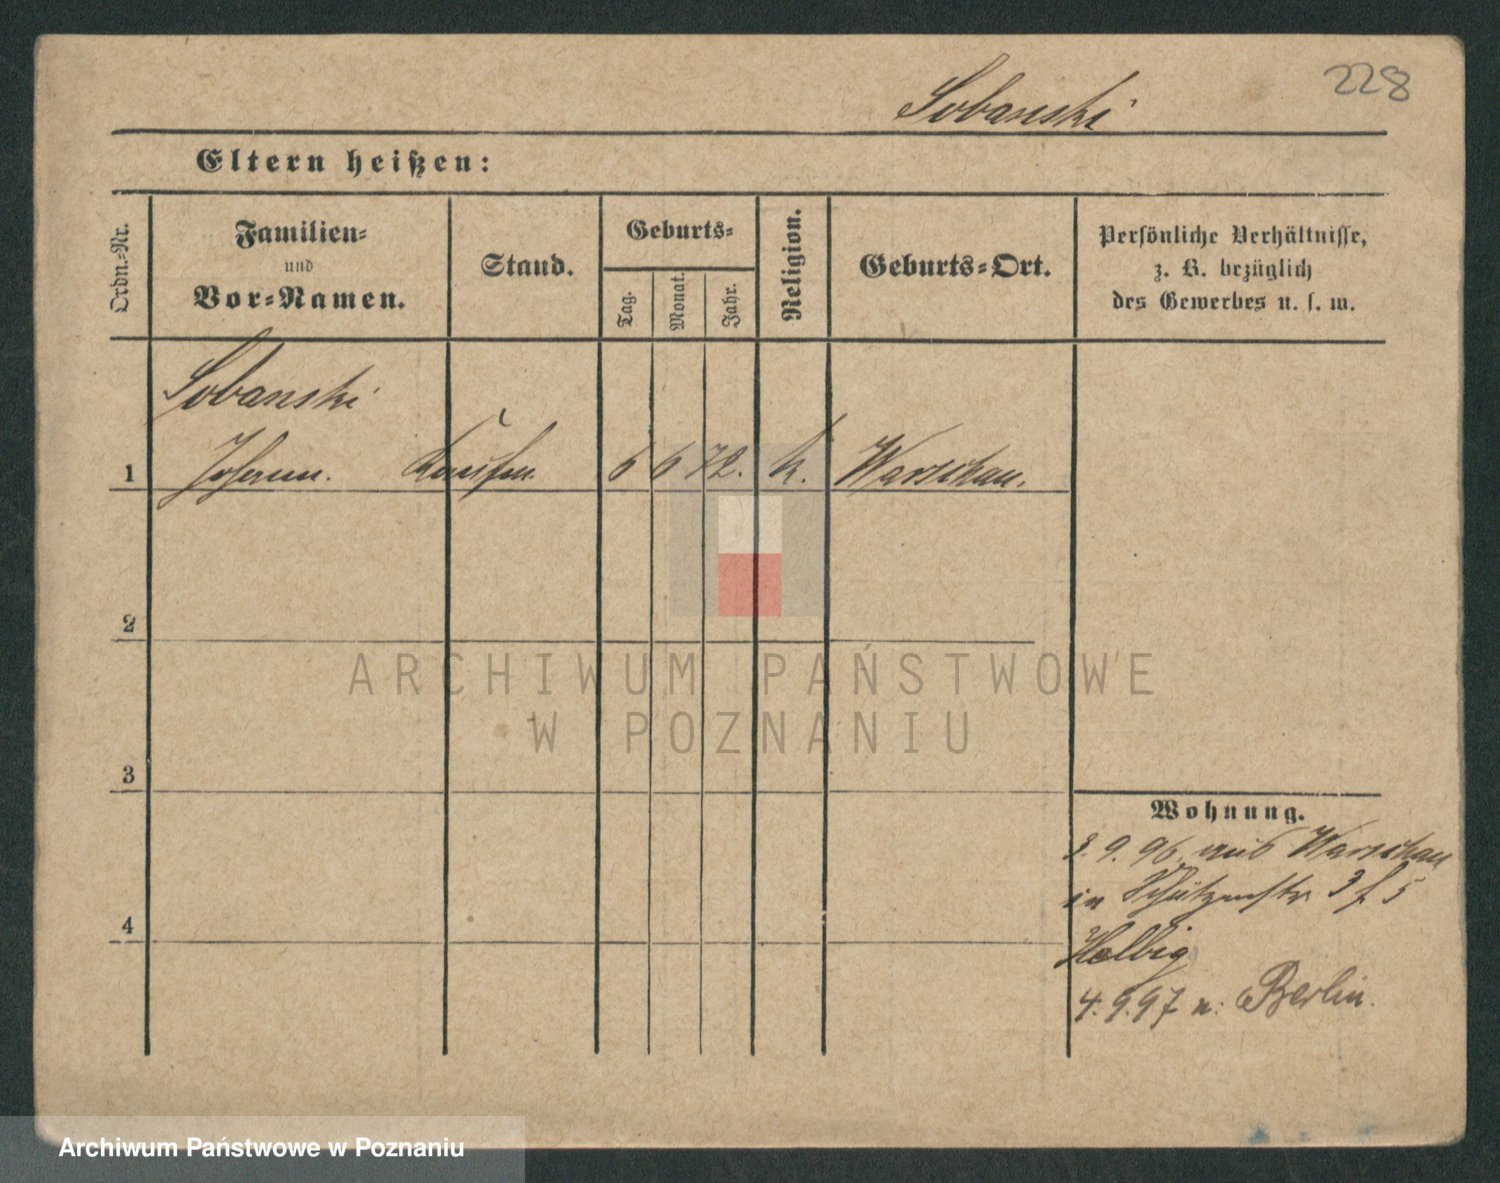 228
Sobanski
Eltern heißen:
Ordn.-Nr.
Familien-
und
Vor-Namen.
Stand.
Geburts-
Tag.
Monat.
Jahr.
Religion.
Geburts-Ort.
Persönliche Verhältnisse,
z. B. bezüglich
des Gewerbes u. s. w.
Sobanski
1 Johann. Kaufm. 6 6 72. k. Warschau.
2
ARCHIWUM PAŃSTWOWE
W POZNANIU
3
Wohnung.
3. 9. 96 aus Warschau
in Schützenstr 3 f. 5
4
Helbig
4. 9. 97 n. Berlin.
Archiwum Państwowe w Poznaniu